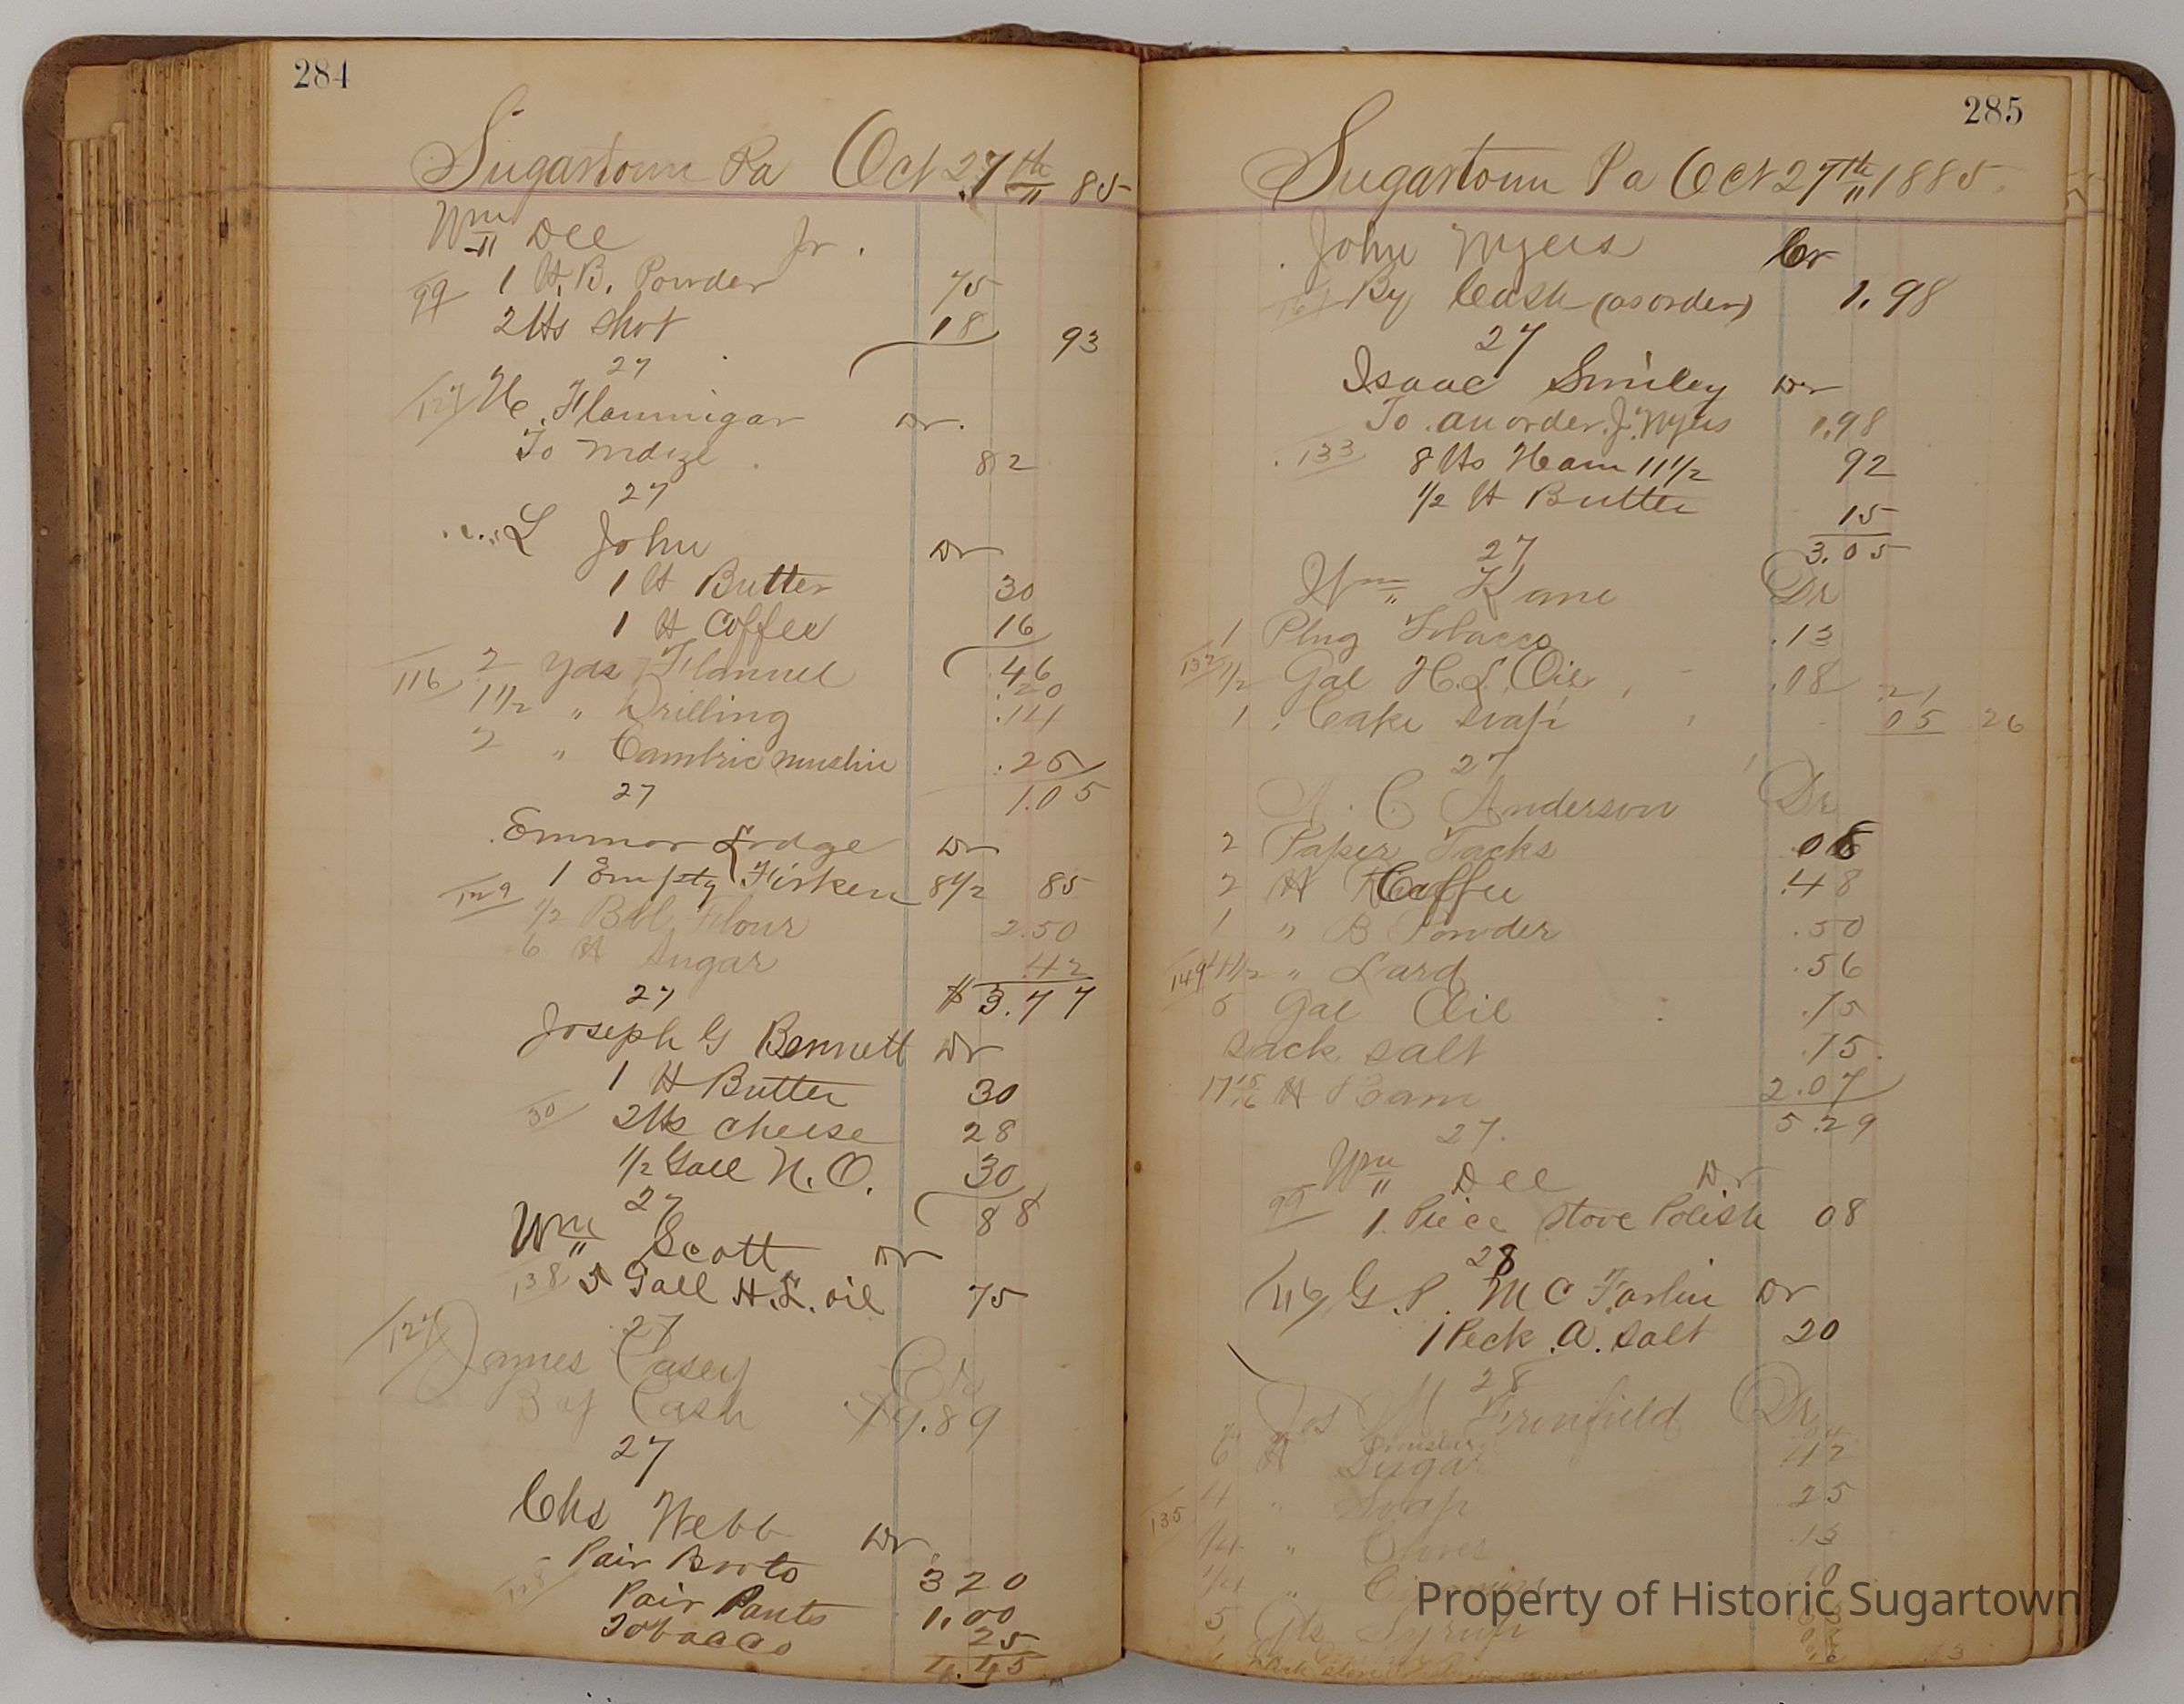 284
Sugartown Pa Oct 27th 85
Wm Dee Jr.
99 1 lb. B. Powder 75
2 lbs Shot 18 93
27
127 H. Flannigar Dr.
To Mdize 82
27
L John Dr
1 lb Butter 30
1 lb Coffee 16
46
116 2 yds Flannel .20
1 1/2 " Drilling .14
2 " Cambric muslin .25
27 1.05
Emmor Lodge Dr
129 1 Empty Firken 8 1/2 85
1/2 Bbl Flour 2.50
6 lb Sugar .42
27 $3.77
Joseph G Bennett Dr
1 lb Butter 30
30 2 lbs Cheese 28
1/2 Gall N. O. 30
27 88
Wm Scott Dr
138 5 Gall H.L. oil 75
27
127 James Casey Cr
By Cash 19.89
27
Chs Webb Dr
Pair Boots 3 20
128 Pair Pants 1.00
Tobacco 25
4.45
285
Sugartown Pa Oct 27th 1885
John Myers Cr
By Cash (as order) 1.98
27
Isaac Smiley Dr
To an order J. Myers 1.98
133 8 lbs Ham 11 1/2 92
1/2 lb Butter 15
27 3.05
Wm Kane Dr
1 Plug Tobacco .13
132 1/2 Gal H.L. Oil .08 21
1 Cake Soap 05 26
27
C Anderson Dr
2 Paper Tacks 06
2 lb Coffee .48
1 " B Powder .50
149 4 1/2 " Lard .56
5 Gal Oil .75
Sack Salt .15
17 15/16 lb Ham 2.07
27. 5.29
Wm Dee Dr
99 1 Piece Stove Polish 08
28
116 G. P. McFarlin Dr
1 Peck A. Salt 20
28
Jos M Dr
6 lb Sugar 42
4 " Soap 25
135 1/4 " Cloves .13
1/4 " 10
5 Syrup
Property of Historic Sugartown